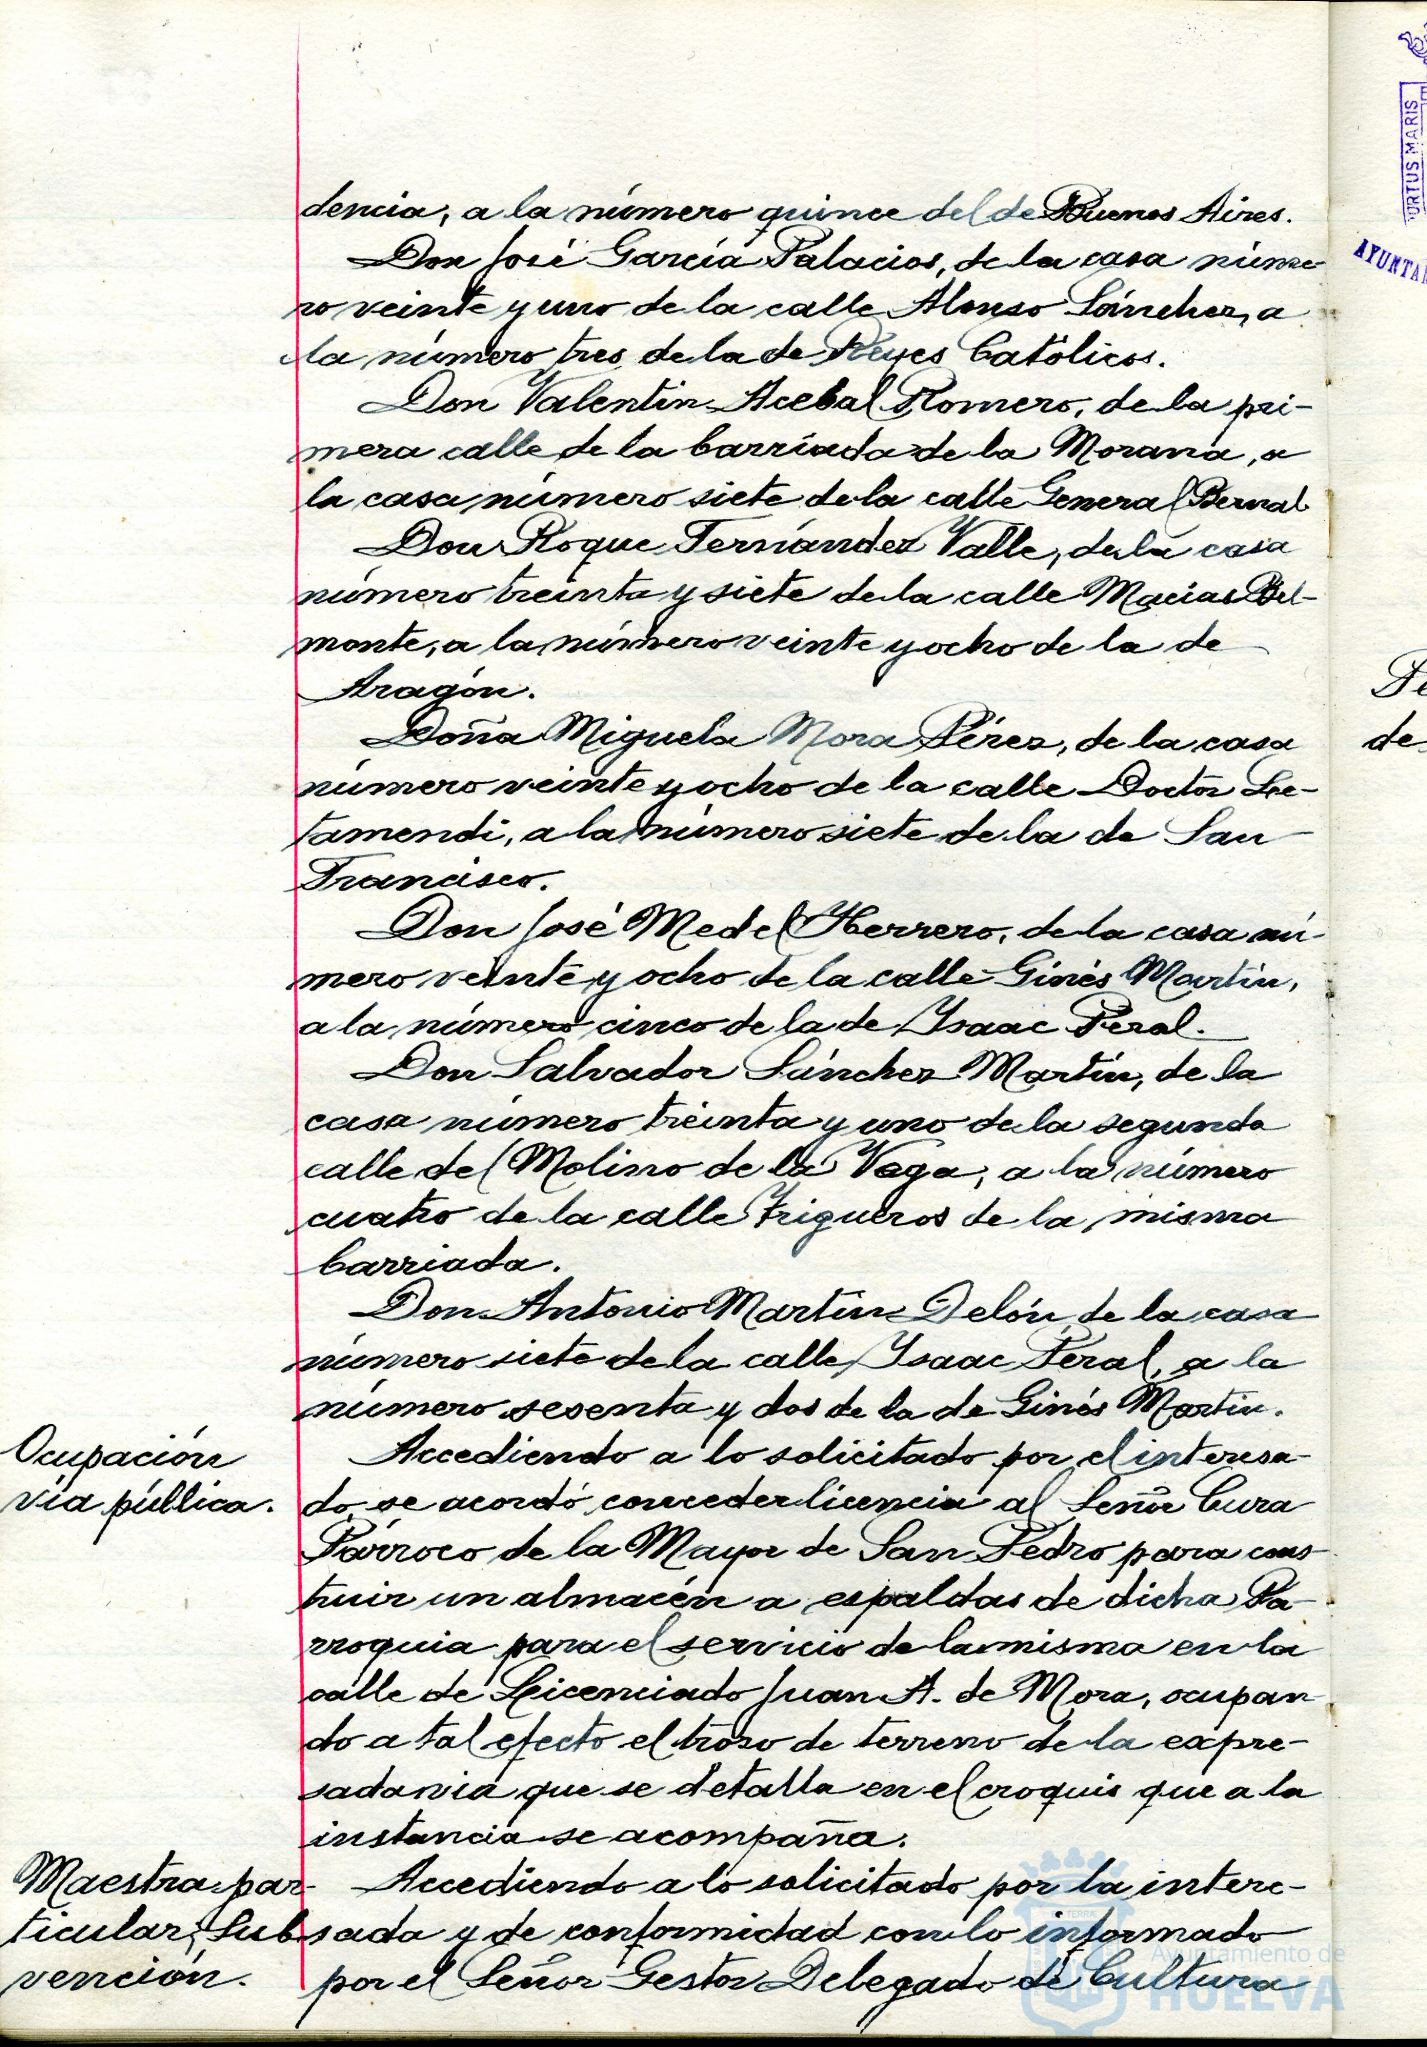 dencia, a la número quince del de Buenos Aires.
Don José García Palacios, de la casa núme-
ro veinte y uno de la calle Alonso Sánchez, a
la número tres de la de Reyes Católicos.
Don Valentín Acebal Romero, de la pri-
mera calle de la barriada de la Morana, a
la casa número siete de la calle General Bernal
Don Roque Fernández Valle, de la casa
número treinta y siete de la calle Macías Bel-
monte, a la número veinte y ocho de la de
Aragón.
Doña Miguela Mora Pérez, de la casa
número veinte y ocho de la calle Doctor Le-
tamendi, a la número siete de la de San
Francisco.
Don José Medel Herrero, de la casa nú-
mero veinte y ocho de la calle Ginés Martín,
a la número cinco de la de Isaac Peral.
Don Salvador Sánchez Martín, de la
casa número treinta y uno de la segunda
calle del Molino de la Vega, a la número
cuatro de la calle Trigueros de la misma
barriada.
Don Antonio Martín Delón, de la casa
número siete de la calle Isaac Peral, a la
número sesenta y dos de la de Ginés Martín.
Ocupación
vía pública.
Accediendo a lo solicitado por el interesa-
do, se acordó conceder licencia al Señor Cura
Párroco de la Mayor de San Pedro para cons-
truir un almacén a espaldas de dicha Pa-
rroquia para el servicio de la misma en la
calle de Licenciado Juan A. de Mora, ocupan-
do a tal efecto el trozo de terreno de la expre-
sada vía que se detalla en el croquis que a la
instancia se acompaña.
Maestra par-
ticular; Sub-
vención.
Accediendo a lo solicitado por la intere-
sada y de conformidad con lo informado
por el Señor Gestor Delegado de Cultura
Ayuntamiento de
HUELVA
TERRÆ
ORTUS MARIS
AYUNTA
de